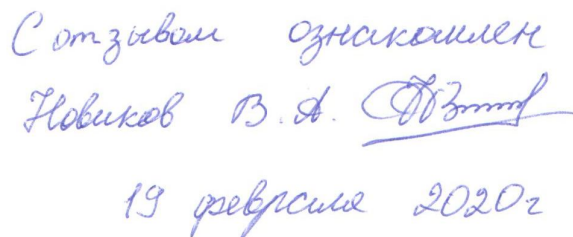 С отзывом ознакомлен
Новиков В.А.
19 февраля 2020г